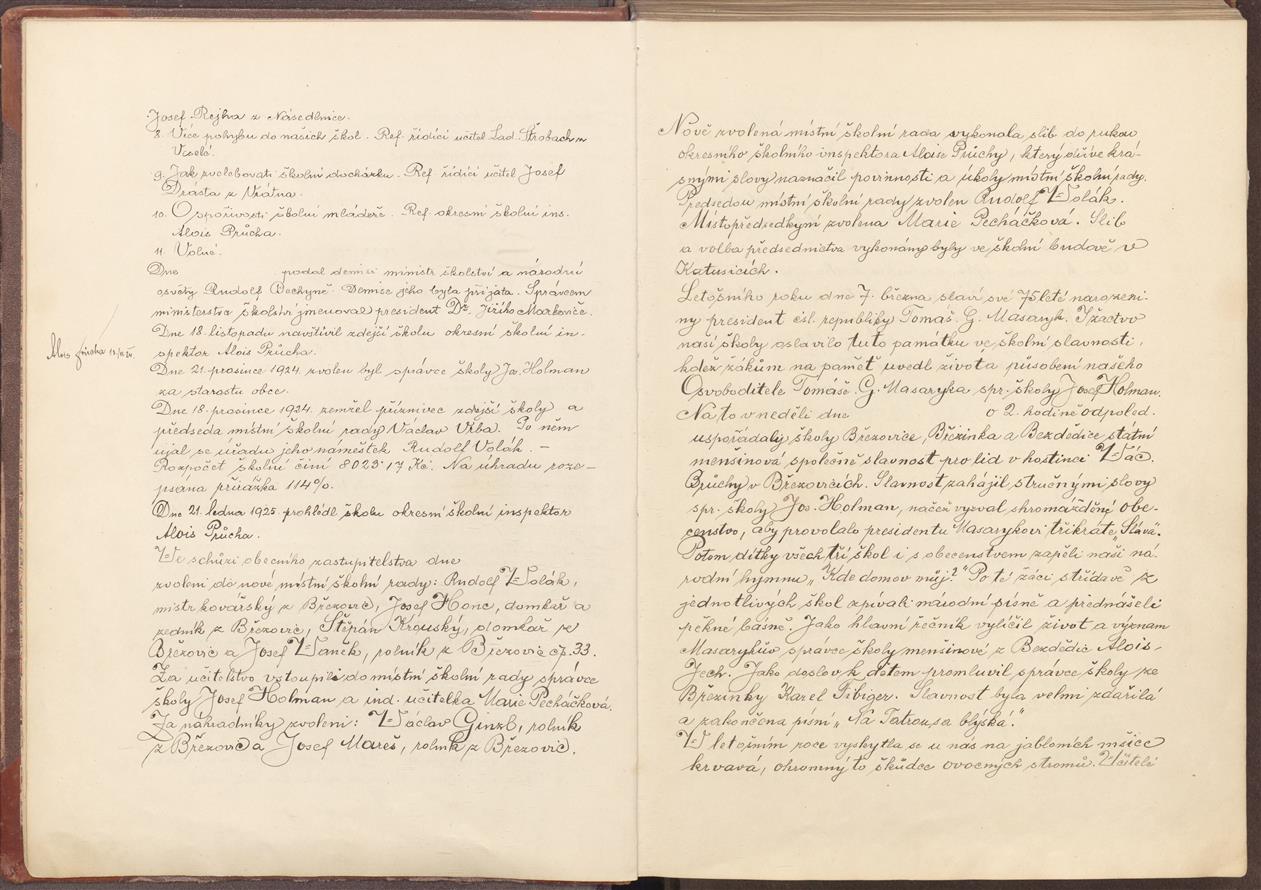 Josef Rejha z Násedlnice.
8. Více pohybu do našich škol. Ref. řídící učitel Lad. Štrobach ve
Vselé.
9. Jak zvelebovati školní docházku. Ref. řídící učitel Josef
Drasta z Vrátna.
10. O spořivosti školní mládeže. Ref. okresní školní ins.
Alois Průcha.
11. Volné.
Dne podal demisi ministr školství a národní
osvěty Rudolf Bechyně. Demise jeho byla přijata. Správcem
ministerstva školství jmenoval president Dr. Jiřího Markoviče.
Dne 18. listopadu navštívil zdejší školu okresní školní in-
spektor Alois Průcha.
Alois Průcha
Dne 21. prosince 1924 zvolen byl správce školy Jos. Holman
za starostu obce.
Dne 18. prosince 1924 zemřel příznivec zdejší školy a
předseda místní školní rady Václav Vrba. Po něm
ujal se úřadu jeho náměstek Rudolf Volák. –
Rozpočet školní činí 8023·17 Kč. Na úhradu roze-
psána přirážka 114%.
Dne 21. ledna 1925 prohlédl školu okresní školní inspektor
Alois Průcha.
Ve schůzi obecního zastupitelstva dne
zvoleni do nové místní školní rady: Rudolf Volák,
mistr kovářský z Březovic, Josef Honc, domkář a
zedník z Březovic, Štěpán Krouský, domkář ze
Březovic a Josef Vaněk, rolník z Březovic čp. 33.
Za učitelstvo vstoupili do místní školní rady správce
školy Josef Holman a ind. učitelka Marie Pecháčková.
Za náhradníky zvoleni: Václav Ginzl, rolník
z Březovic a Josef Mareš, rolník z Březovic.
Nově zvolená místní školní rada vykonala slib do rukou
okresního školního inspektora Aloise Průchy, který dříve krá-
snými slovy naznačil povinnosti a úkoly místní školní rady.
Předsedou místní školní rady zvolen Rudolf Volák.
Místopředsedkyní zvolena Marie Pecháčková. Slib
a volba předsednictva vykonány byly ve školní budově v
Katusicích.
Letošního roku dne 7. března slaví své 75leté narozeni-
ny president čsl. republiky Tomáš G. Masaryk. I žactvo
naší školy oslavilo tuto památku ve školní slavnosti,
kdež žákům na paměť uvedl života působení našeho
Osvoboditele Tomáše G. Masaryka spr. školy Josef Holman.
Na to v neděli dne o 2. hodině odpoled.
uspořádaly školy Březovice, Březinka a Bezdědice státní
menšinová společně slavnost pro lid v hostinci Vác.
Průchy v Březovicích. Slavnost zahájil stručnými slovy
spr. školy Jos. Holman, načež vyzval shromážděné obe-
censtvo, aby provolalo presidentu Masarykovi třikráte „Sláva“.
Potom dítky všech tří škol i s obecenstvem zapěli naši ná-
rodní hymnu „Kde domov můj?“ Po té žáci střídavě z
jednotlivých škol zpívali národní písně a přednášeli
pěkné básně. Jako hlavní řečník vylíčil život a význam
Masarykův správce školy menšinové z Bezdědic Alois
Jech. Jako doslov k dětem promluvil správce školy ze
Březinky Karel Fibiger. Slavnost byla velmi zdařilá
a zakončena písní „Na Tatrou sa blýská.“
V letošním roce vyskytla se u nás na jabloních mšice
krvavá, ohromný to škůdce ovocných stromů. Učitelé